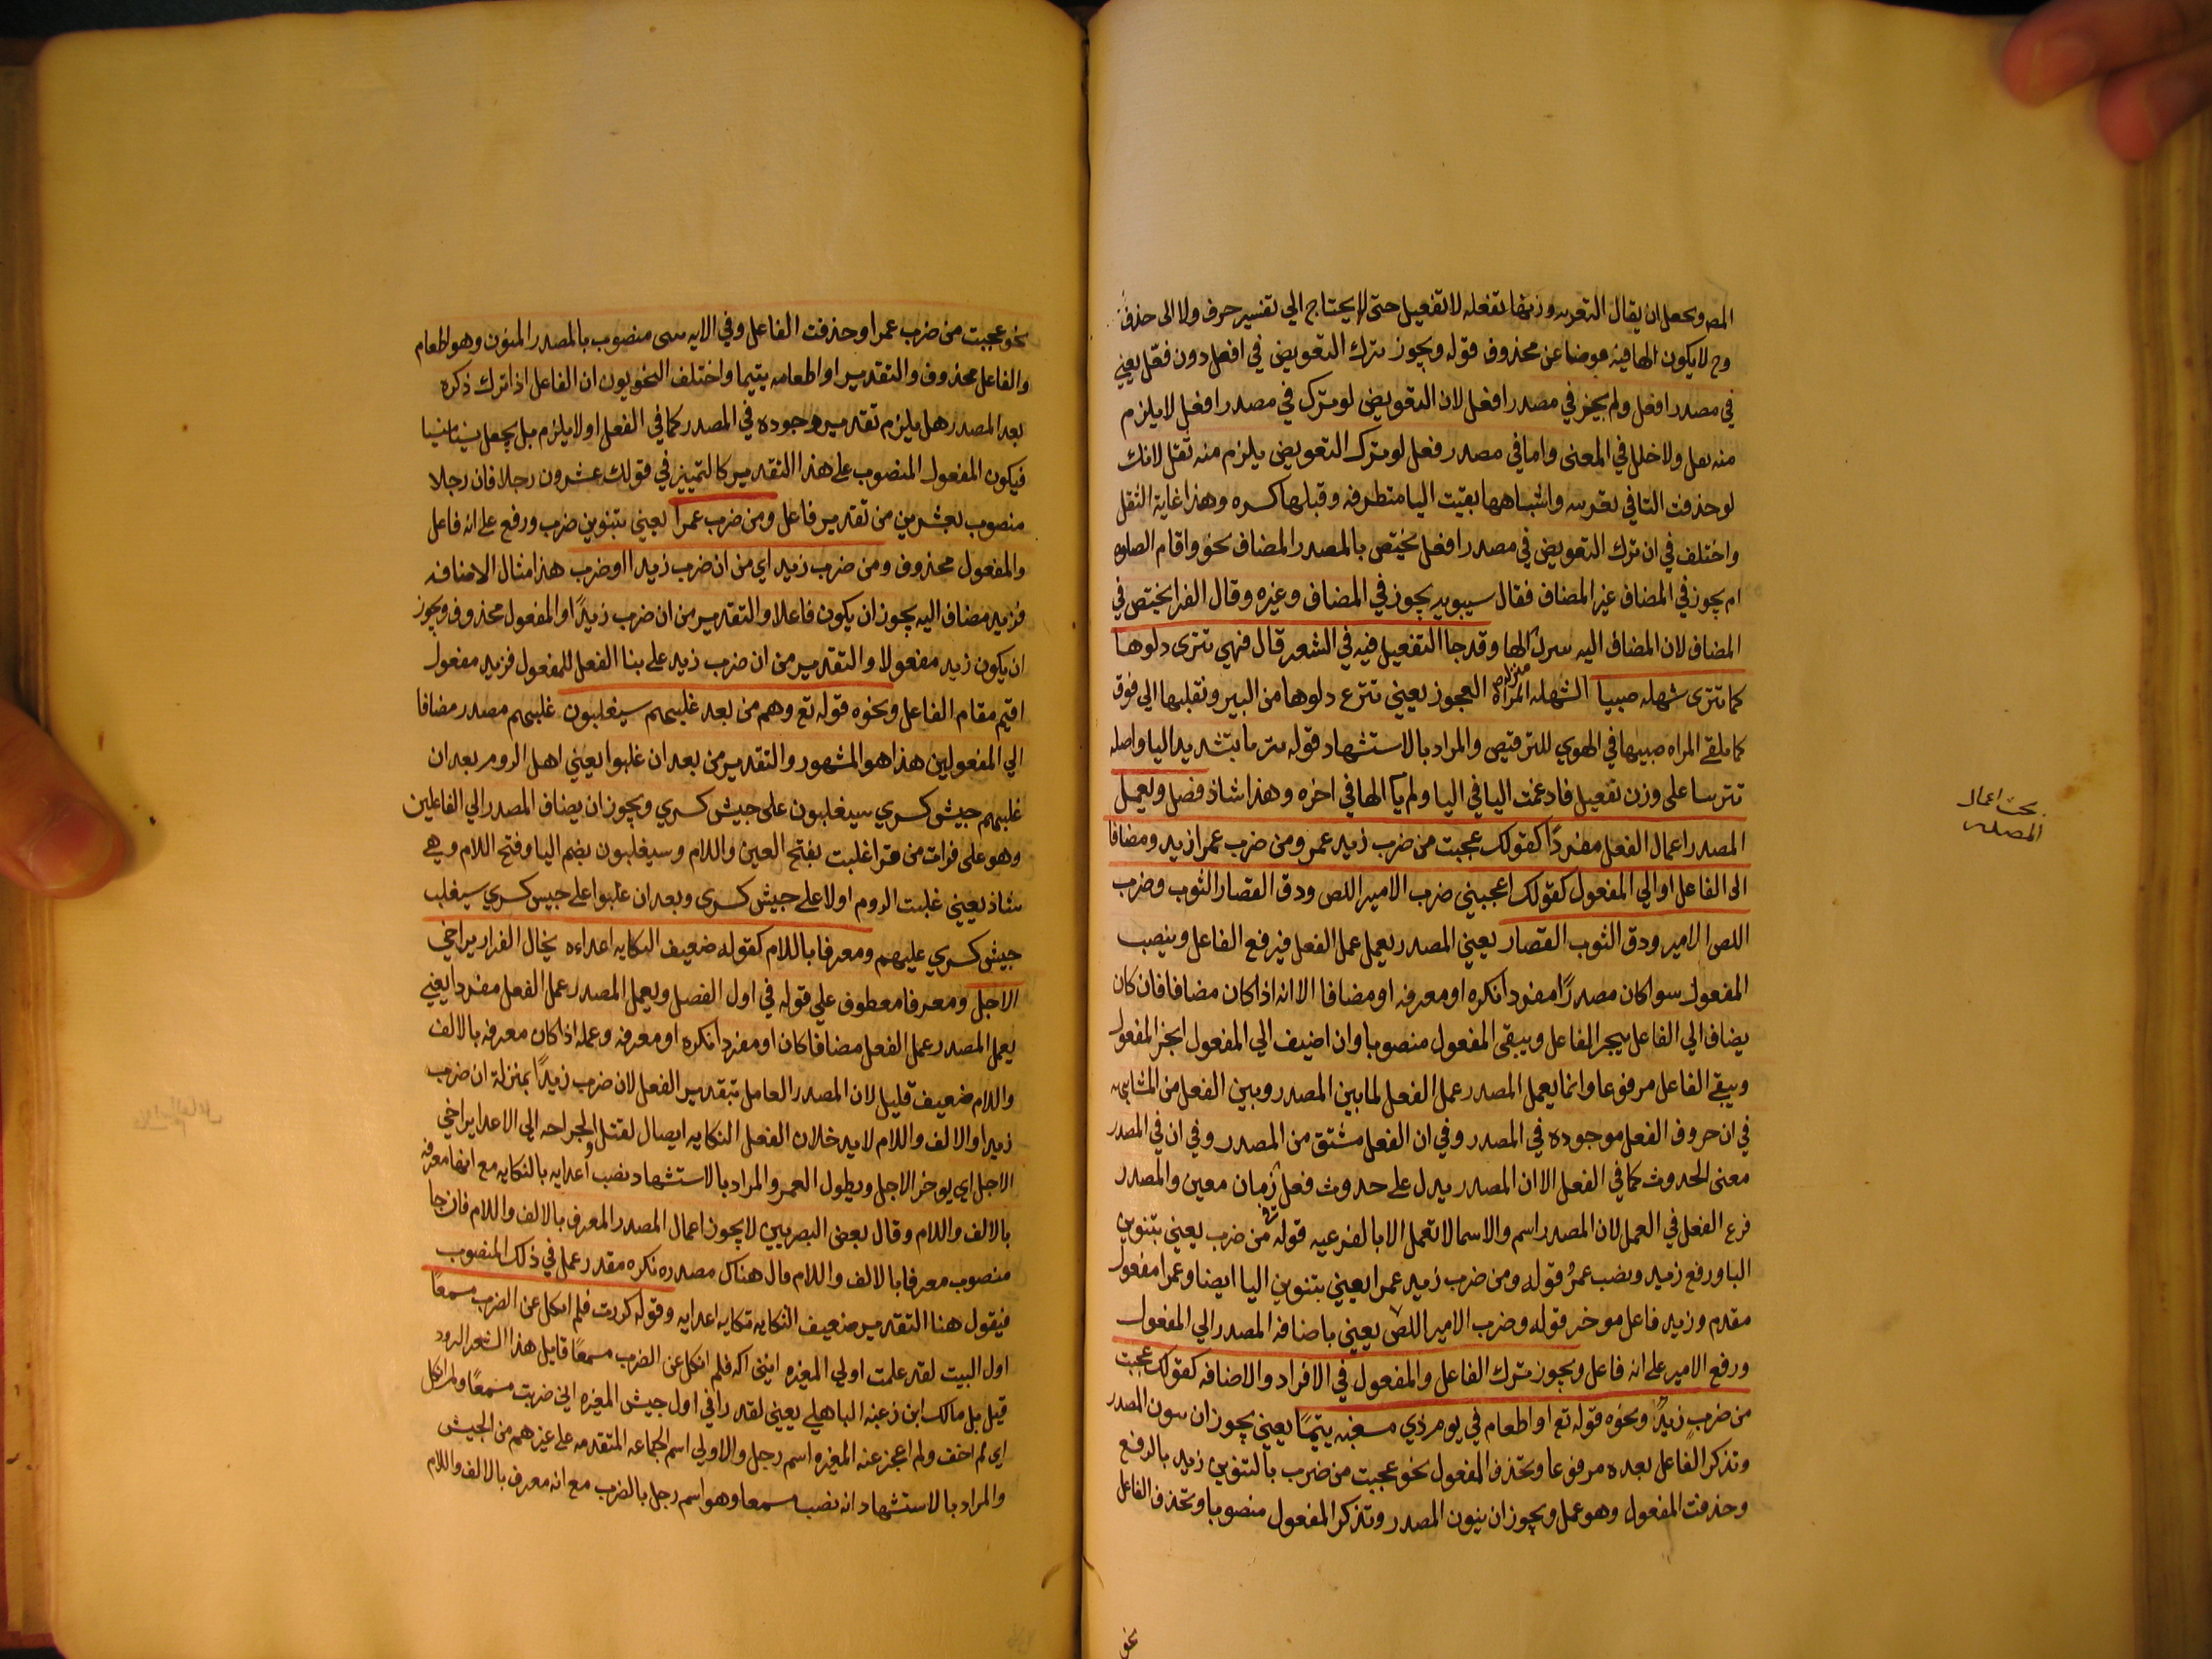 ان يقال التعزيه وزنها تفعله لا تفعيل حتى لا يحتاج الي تفسير حرف ولا الى حذف
وح لا يكون الها فيه عوضا عن محذوف قوله ويجوز ترك التعويض في افعل دون فعّل يعني
في مصدر افعل ولم يجز في مصدر افعل لان التعويض لو ترك في مصدر افعل لا يلزم
منه ولا خلل في المعنى واما في مصدر فعل لو ترك التعويض يلزم منه ثقل لانك
لو حذفت التا في واشباهها بقيت اليا متطرفه وقبلها كسره وهذا غاية الثقل
واختلف في ان ترك التعويض في مصدر افعل يختص بالمصدر المضاف نحو واقام الصلوه
ام يجوز في المضاف غير المضاف فقال سيبويه يجوز في المضاف وغيره وقال الفرا يختص في
المضاف لان المضاف اليه الها وقد جا التفعيل فيه في الشعر قال فهي تنزى دلوها
كما تنزى شهله صبيا الشهله المراه العجوز يعني تنزع دلوها من البير ونقلبها الى فوق
كما تلقى المراه صبيها في الهوي للترقيص والمراد بالاستشهاد قوله بتشديد اليا واصله
على وزن تفعيل فادغمت اليا في اليا ولم يأ الها في اخره وهذا شاذ فصل ويعمل
المصدر اعمال الفعل مفردا كقولك عجبت من ضرب زيد عمرو ومن ضرب عمرا زيد ومضافا
الى الفاعل او الي المفعول كقولك اعجبني ضرب الامير اللص ودق القصار الثوب وضرب
اللص الامير ودق الثوب القصار يعني المصدر يعمل عمل الفعل فيرفع الفاعل وينصب
المفعول سوا كان مصدرًا مفردا نكره او معرفه او مضافا الا انه اذا كان مضافا فان كان
يضاف الي الفاعل يجر الفاعل ويبقى المفعول منصوبا وان اضيف الي المفعول انجر المفعول
ويبقي الفاعل مرفوعا وانما يعمل المصدر عمل الفعل لما بين المصدر وبين الفعل من المشابهه
في ان حروف الفعل موجوده في المصدر وفي ان الفعل مشتق من المصدر وفي ان في المصدر
معنى الحدوث كما في الفعل الا ان المصدر يدل على حدوث فعل زمان معين والمصدر
فرع الفعل في العمل لان المصدر اسم والاسما لا تعمل الا بالفرعيه قوله من ضرب يعني بتنوين
البا ورفع زيد ونصب عمرو قوله ومن ضرب زيد عمرا يعني بتنوين اليا ايضا وعمرا مفعول
مقدم وزيد فاعل موخر قوله وضرب الامير اللص يعني باضافه المصدر الي المفعول
ورفع الامير على انه فاعل ويجوز ترك الفاعل والمفعول في الافراد والاضافه كقولك عجبت
من ضرب زيدًا ونحوه قوله تع او اطعام في يوم ذي مسغبه يتيمًا يعني يجوز ان المصدر
وتذكر الفاعل بعده مرفوعا وتحذف المفعول نحو عجبت من ضرب بالتنوين زيد بالرفع
وحذفت المفعول وهو عمل ويجوز ان ينون المصدر وتذكر المفعول منصوبا وتحذف الفاعل
نحو
بحث اعمال
المصدر
نحو عجبت من ضرب عمرا وحذفت الفاعل وفي الايه منصوب بالمصدر المنون وهو اطعام
والفاعل محذوف والتقدير او اطعامه يتيما واختلف النحويون ان الفاعل اذا ترك ذكره
بعد المصدر هل يلزم تقدير وجوده في المصدر كما في الفعل او لا يلزم بل يجعل
فيكون المفعول المنصوب على هذا التقدير كالتمييز في قولك عشرون رجلا فان رجلا
منصوب بعشرين من تقدير فاعل ومن ضرب عمرا يعني بتنوين ضرب ورفع على انه فاعل
والمفعول محذوف ومن ضرب زيد اي من ان ضرب زيد او ضرب هذا مثال الاضافه
فزيد مضاف اليه يجوز ان يكون فاعلا والتقدير من ان ضرب زيدًا والمفعول محذوف ويجوز
ان يكون زيد مفعولا والتقدير من ان ضرب زيد على بنا الفعل للمفعول فزيد مفعول
اقيم مقام الفاعل ونحوه قوله تع وهم من بعد غلبهم سيغلبون غلبهم مصدر مضافا
الي المفعولين هذا هو المشهور والتقدير من بعد ان غلبوا يعني اهل الروم بعد ان
غلبهم جيش كسري سيغلبون على جيش كسري ويجوز ان يضاف المصدر الي الفاعلين
وهو على قراة من قرا غلبت بفتح الغين واللام وسيغلبون بضم اليا وفتح اللام وهي
شاذ يعني غلبت الروم اولا على جيش كسرى وبعد ان غلبوا على جيس كسري سيغلب
جيش كسري عليهم ومعرفا باللام كقوله ضعيف النكايه اعداءه يخال الفرار يراخي
الاجل ومعرفا معطوف علي قوله في اول الفصل ويعمل المصدر عمل الفعل مفردا يعني
يعمل المصدر عمل الفعل مضافا كان او مفردا نكره او معرفه وعمله اذا كان معرفه بالالف
واللام ضعيف قليل لان المصدر العامل بتقدير الفعل لان ضرب زيدًا بمنزلة ان ضرب
زيدا والالف واللام لا يدخلان الفعل النكايه ايصال لقتل والجراحه الي الاعدا يراخي
الاجل اي يوخر الاجل ويطول العمر والمراد بالاستشهاد نصب اعدايه بالنكايه مع انها معرفه
بالالف واللام وقال بعض البصريين لا يجوز اعمال المصدر المعرف بالالف واللام فان جا
منصوب معرفا بالالف واللام قال هناك مصدره نكره مقدر عمل في ذلك المنصوب
فيقول هنا التقدير ضعيف النكايه نكايه اعدايه وقوله كررت فلم انكل عن الضرب مسمعًا
اول البيت لقد علمت اولي المغيره انني اكه فلم انكل عن الضرب مسمعًا قايل هذا الشعر
قيل بل مالك ابن زغبه الباهلي يعني لقد راني اول جيش المغيره اني ضربت مسمعًا ولم انكل
اي لم اخف ولم اعجز عنه المغيره اسم رجل والاولي اسم الجماعه المتقدمه على غيرهم من الجيش
والمراد بالاستشهاد انه نصب مسمعا وهو اسم رجل بالضرب مع انه معرف بالالف واللام